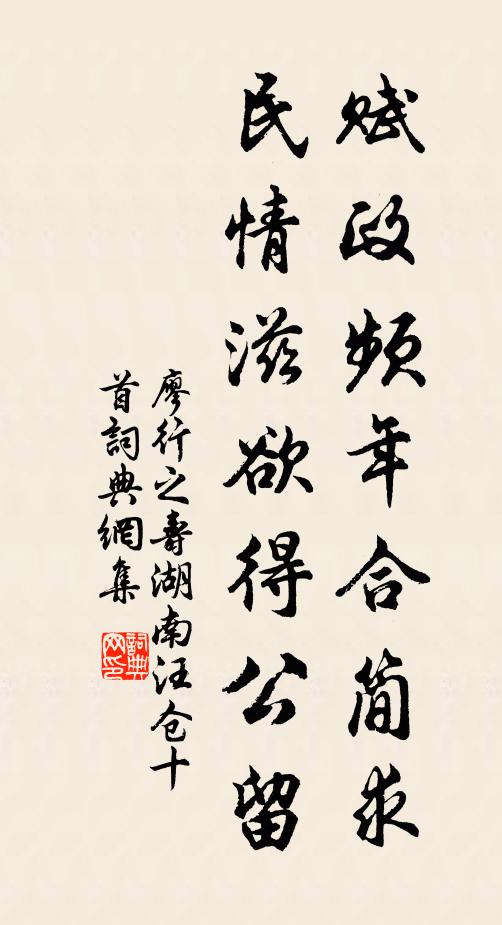 赋政频年合简求
民情滋欲得公留
廖行之寿湖南汪仓十
首词典網集
詞典网印